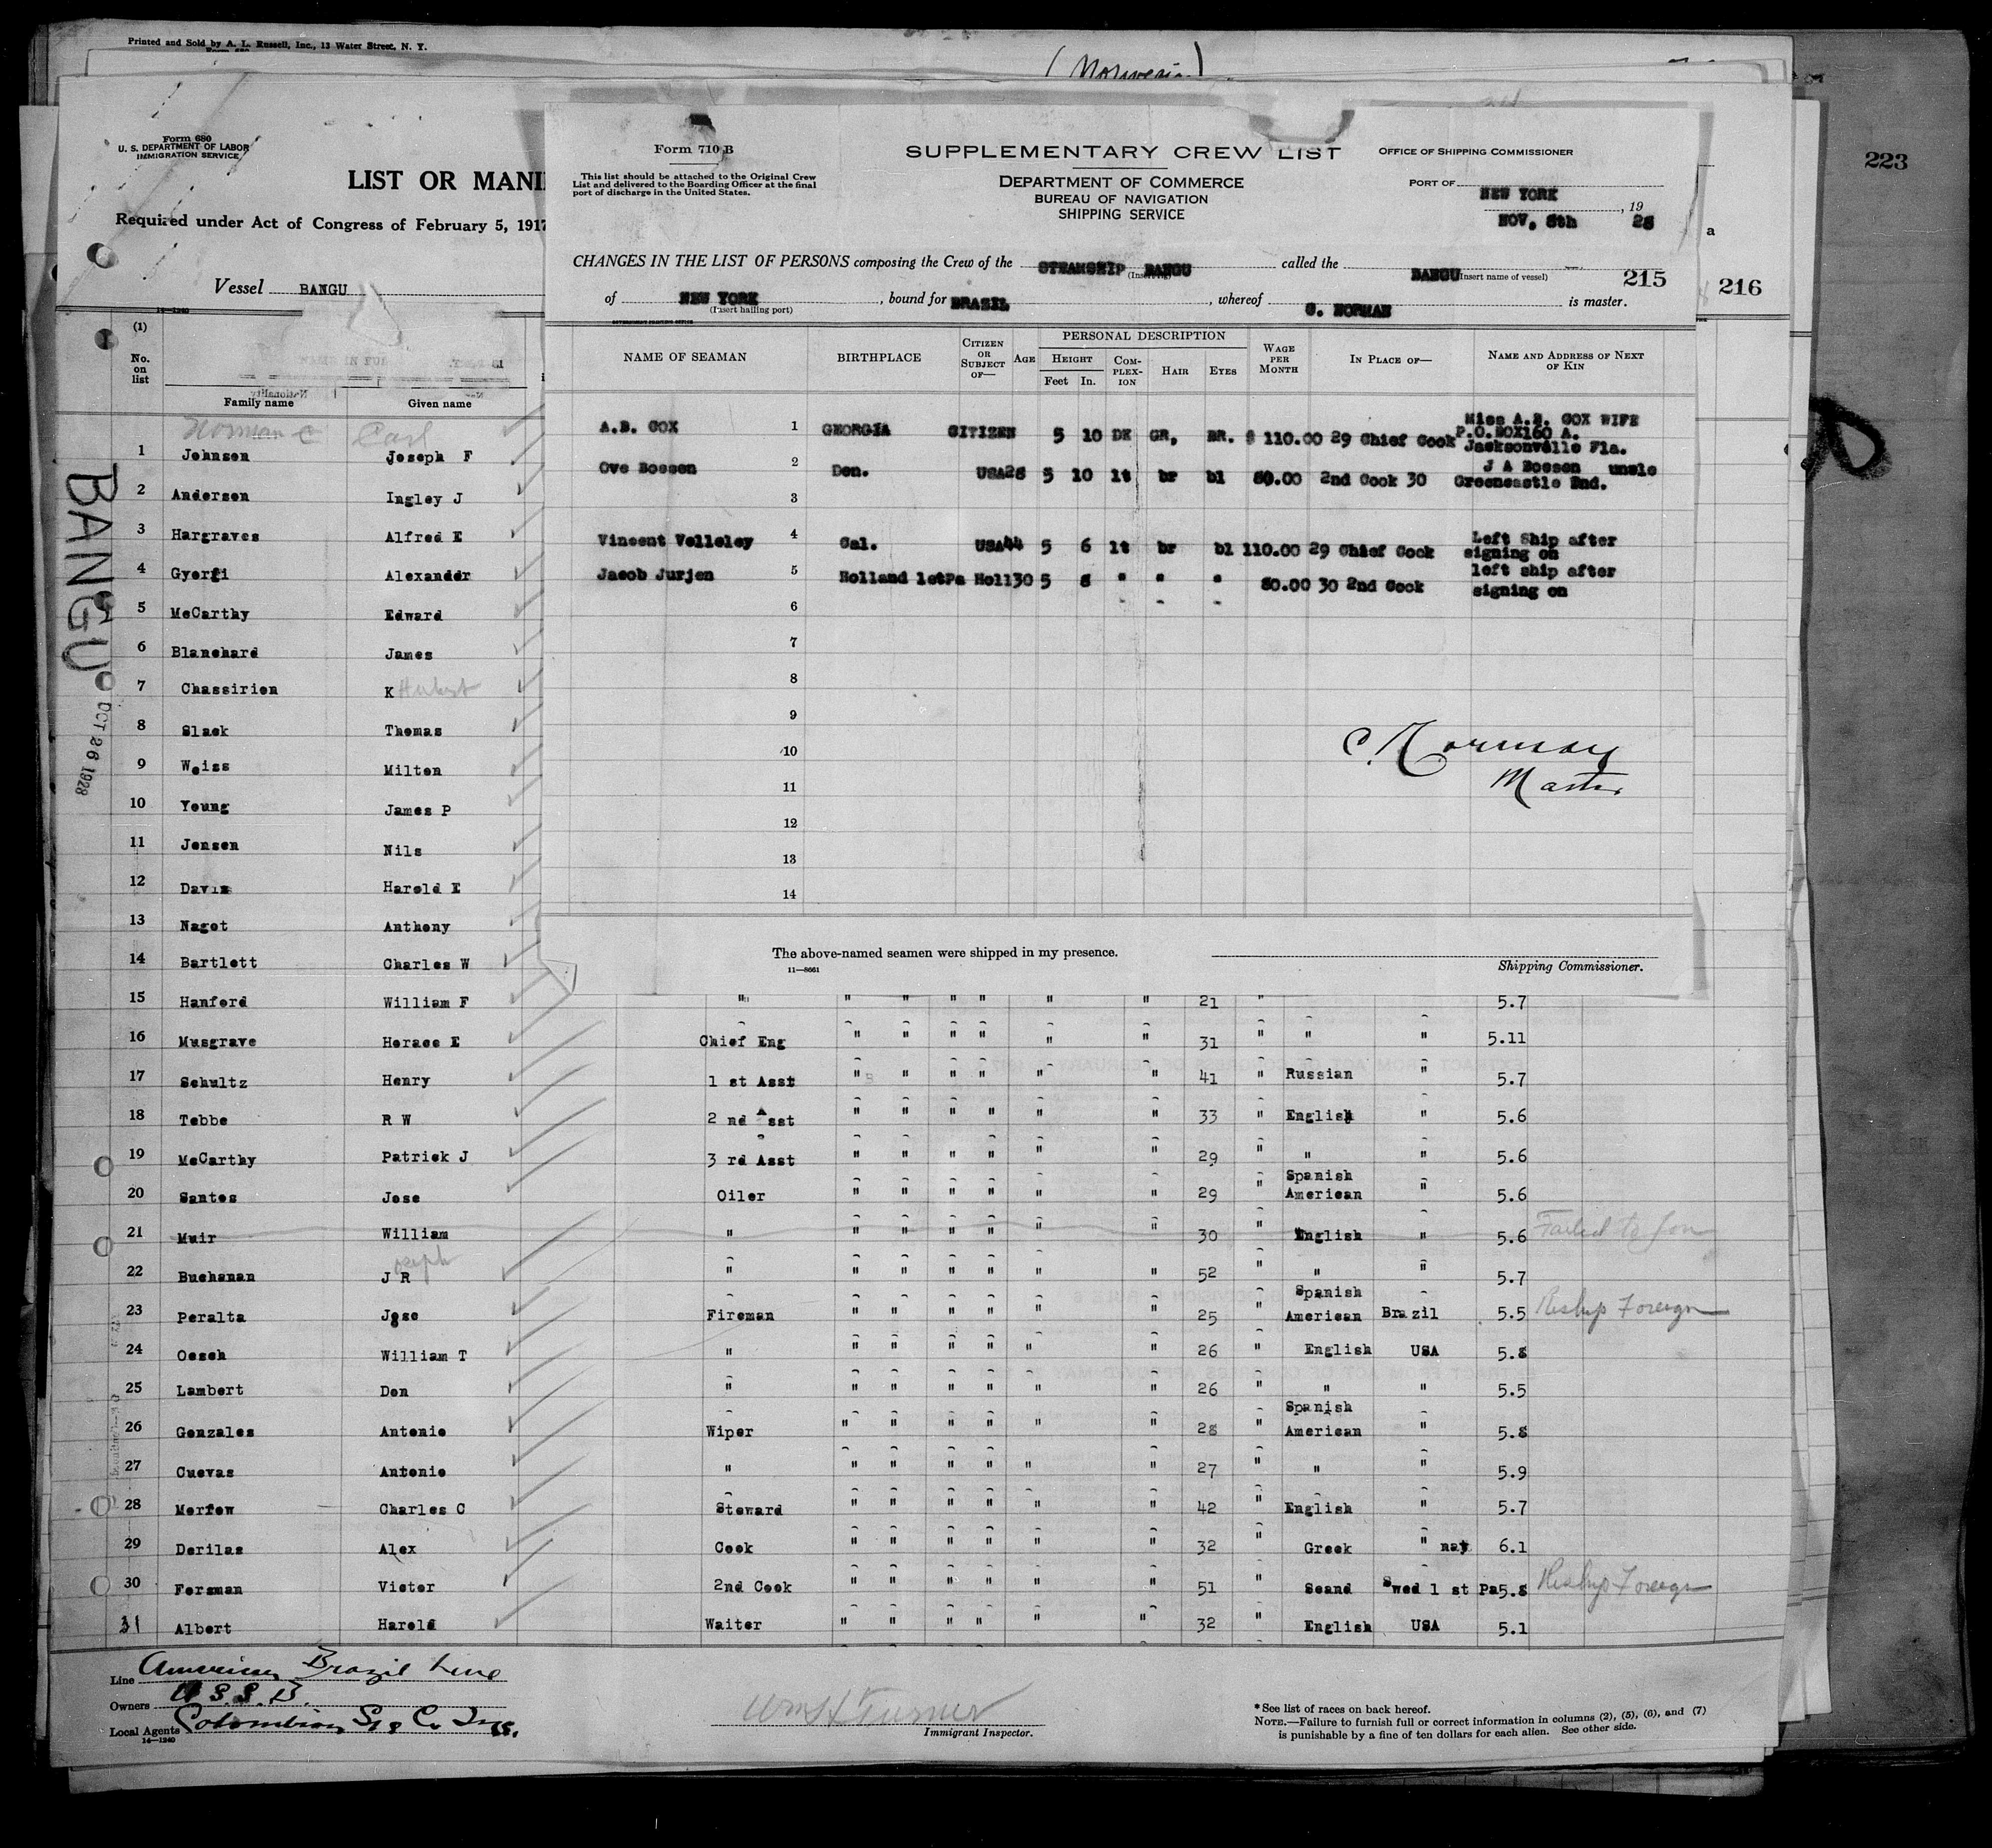 Printed and Sold by A. L. Russell, Inc., 13 Water Street, N. Y.
223
Form 680
U. S. DEPARTMENT OF LABOR
IMMIGRATION SERVICE
LIST OR MANI
Required under Act of Congress of February 5, 1917
Vessel BANGU
Form 710 B
This list should be attached to the Original Crew
List and delivered to the Boarding Officer at the final
port of discharge in the United States.
SUPPLEMENTARY CREW LIST
DEPARTMENT OF COMMERCE
BUREAU OF NAVIGATION
SHIPPING SERVICE
OFFICE OF SHIPPING COMMISSIONER
PORT OF NEW YORK
NOV. 8th , 19 28
a
CHANGES IN THE LIST OF PERSONS composing the Crew of the STEAMSHIP BANGU called the BANGU (Insert name of vessel)
215
216
of NEW YORK , bound for BRAZIL , whereof C. NORMAN is master.
(Insert hailing port)
NAME OF SEAMAN BIRTHPLACE CITIZEN OR SUBJECT OF— AGE PERSONAL DESCRIPTION HEIGHT Feet In. COMPLEXION HAIR EYES WAGE PER MONTH IN PLACE OF— NAME AND ADDRESS OF NEXT OF KIN
A.B. COX 1 GEORGIA CITIZEN 5 10 DK GR, BR. $ 110.00 29 Chief Cook Miss A.B. COX WIFE
P.O.BOX160 A.
Jacksonville Fla.
Ove Bossen 2 Den. USA 28 5 10 lt br bl 80.00 2nd Cook 30 J A Bossen uncle
Greencastle Ind.
3
Vincent Velleley 4 Cal. USA 44 5 6 lt br bl 110.00 29 Chief Cook Left Ship after
signing on
Jacob Jurjen 5 Holland 1stPa Holl 30 5 8 " " " 80.00 30 2nd Cook left ship after
signing on
6
7
8
9
10
11
12
13
14
C. Norman
Master
The above-named seamen were shipped in my presence.
11—8661
Shipping Commissioner.
(1)
No. on list
Family name Given name
Norman C Carl
1 Johnson Joseph F
2 Andersen Ingley J
3 Hargraves Alfred E
4 Gyerfi Alexander
5 McCarthy Edward
6 Blanchard James
7 Chassirien K
8 Slack Thomas
9 Weiss Milton
10 Young James P
11 Jensen Nils
12 Davis Harold E
13 Nagot Anthony
14 Bartlett Charles W
BANGU
OCT 26 1928
15 Hanford William F " " " " " " " 21 " 5.7
16 Musgrave Horace E Chief Eng " " " " " " 31 " " " 5.11
17 Schultz Henry 1 st Asst " " " " " " 41 " Russian " 5.7
18 Tebbe R W 2 nd Asst " " " " " " 33 " English " 5.6
19 McCarthy Patrick J 3 rd Asst " " " " " " 29 " " " 5.6
20 Santos Jose Oiler " " " " " " 29 " Spanish American " 5.6
21 Muir William " " " " " " " 30 " English " 5.6 Failed to Join
22 Buchanan J R oseph " " " " " " " 52 " " " 5.7
23 Peralta Jose Fireman " " " " " " 25 " Spanish American Brazil 5.5 Reship Foreign
24 Oesch William T " " " " " " " 26 " English USA 5.8
25 Lambert Don " " " " " " " 26 " " " 5.5
26 Gonzales Antonio Wiper " " " " " " 28 " Spanish American " 5.8
27 Cuevas Antonio " " " " " " " 27 " " " 5.9
28 Merfew Charles C Steward " " " " " " 42 " English " 5.7
29 Derilas Alex Cook " " " " " " 32 " Greek " nat 6.1
30 Forsman Victor 2nd Cook " " " " " " 51 " Scand Swed 1 st Pa 5.8 Reship Foreign
31 Albert Harold Waiter " " " " " " 32 " English USA 5.1
Line American Brazil Line
Owners U S. S. B.
Local Agents Colombian SS Co Inc.
14—1240
Wm H Turner
Immigrant Inspector.
*See list of races on back hereof.
NOTE.—Failure to furnish full or correct information in columns (2), (5), (6), and (7)
is punishable by a fine of ten dollars for each alien. See other side.